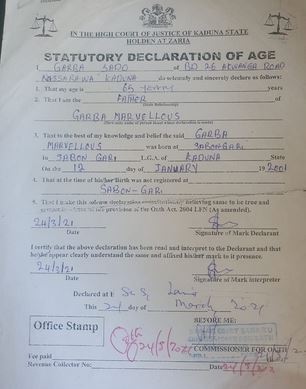 IN THE HIGH COURT OF JUSTICE OF KADUNA STATE
HOLDEN AT ZARIA
STATUTORY DECLARATION OF AGE
I, GARBA SADO of BD 26 AKWANGA ROAD
NASSARAWA KADUNA do solemnly and sincerely declare as follows:
1. That my age is 65 years
2. That I am the FATHER of
(State Relationship)
GARBA MARVELLOUS
3. That to the best of my knowledge and belief the said GARBA
MARVELLOUS was born at SABONGARI
in SABON GARI L.G.A. of KADUNA State
On the 12 day of JANUARY 2001
4. That at the time of his/her Birth was not registered at
SABON-GARI
5. That I make this solemn declaration conscientiously believing same to be true and
of the provision of the Oath Act. 2004 LFN (As amended).
24/3/21
Date Signature of Mark Declarant
I certify that the above declaration has been read and interpret to the Declarant and that
he/she appear clearly understand the same and affixed his/her mark to it presence.
24/3/21
Date Signature of Mark Declarant
Declared at
This 24 day of March 2021
BEFORE ME:
Office Stamp
24/3/2021
COMMISSIONER FOR OATH
Fee paid
Revenue Collector No: Date